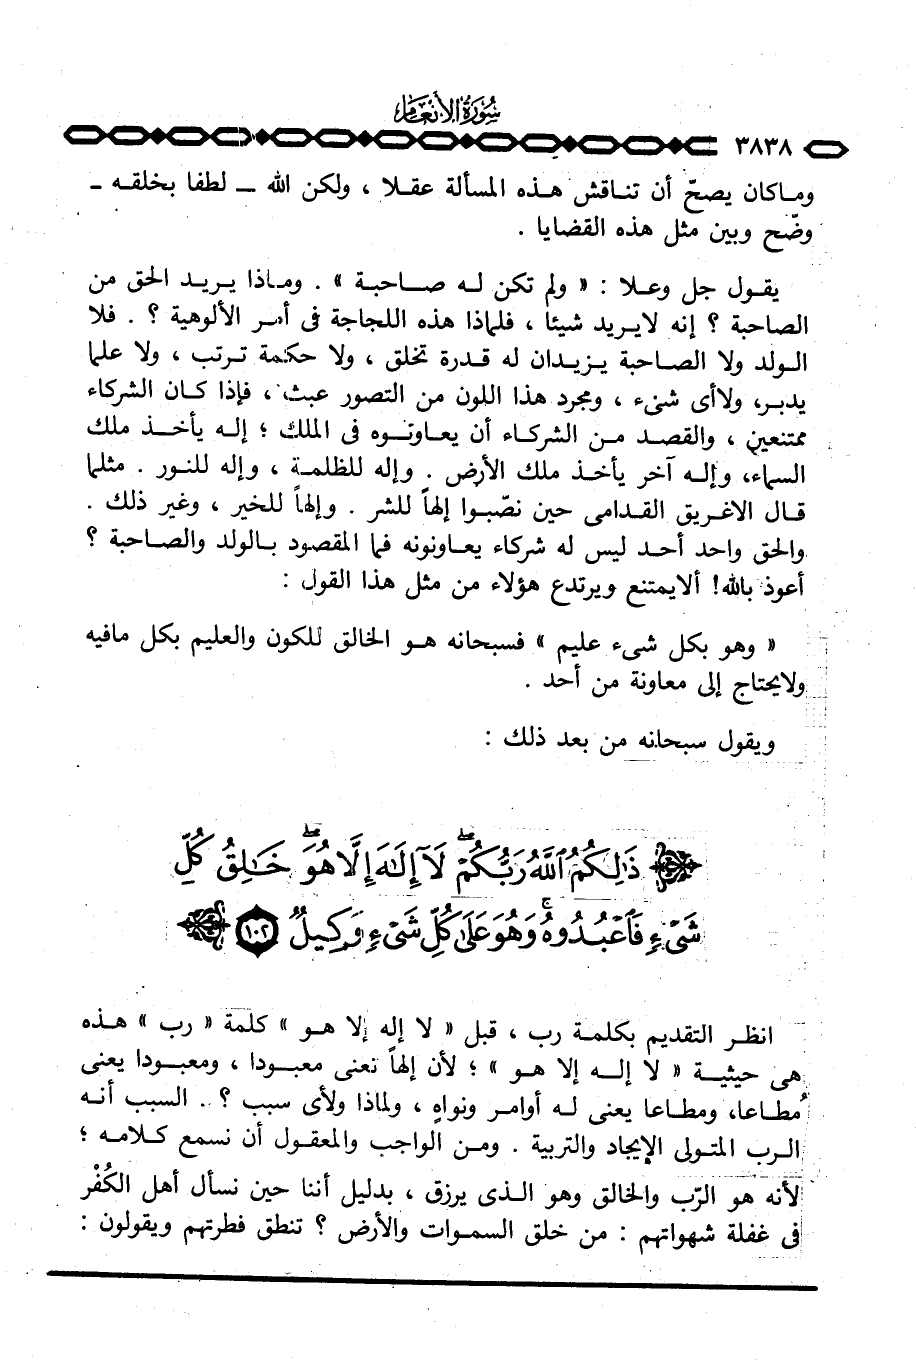 سورة الأنعام
٣٨٣٨
وماكان يصحّ أن تناقش هذه المسألة عقلا ، ولكن الله ــ لطفا بخلقه ــ
وضّح وبين مثل هذه القضايا .
يقول جل وعلا : « ولم تكن له صاحبة » . وماذا يريد الحق من
الصاحبة ؟ إنه لايريد شيئا ، فلماذا هذه اللجاجة فى أمر الألوهية ؟ . فلا
الولد ولا الصاحبة يزيدان له قدرة تخلق ، ولا حكمة ترتب ، ولا علما
يدبر، ولاأى شىء ، ومجرد هذا اللون من التصور عبث ، فإذا كان الشركاء
ممتنعين ، والقصد من الشركاء أن يعاونوه فى الملك ؛ إله يأخذ ملك
السماء، وإله آخر يأخذ ملك الأرض . وإله للظلمة ، وإله للنور . مثلما
قال الاغريق القدامى حين نصّبوا إلهاً للشر . وإلهاً للخير ، وغير ذلك .
والحق واحد أحد ليس له شركاء يعاونونه فما المقصود بالولد والصاحبة ؟
أعوذ بالله! ألايمتنع ويرتدع هؤلاء من مثل هذا القول :
« وهو بكل شىء عليم » فسبحانه هو الخالق للكون والعليم بكل مافيه
ولايحتاج إلى معاونة من أحد .
ويقول سبحانه من بعد ذلك :
ذَٰلِكُمُ ٱللَّهُ رَبُّكُمْ ۖ لَآ إِلَٰهَ إِلَّا هُوَ ۖ خَٰلِقُ كُلِّ
شَىْءٍ فَٱعْبُدُوهُ ۚ وَهُوَ عَلَىٰ كُلِّ شَىْءٍ وَكِيلٌ ١٠٢
انظر التقديم بكلمة رب ، قبل « لا إله إلا هو » كلمة « رب » هذه
هى حيثية « لا إله إلا هو » ؛ لأن إلهاً تعنى معبودا ، ومعبودا يعنى
مُطاعا، ومطاعا يعنى له أوامر ونواهٍ ، ولماذا ولأى سبب ؟ . السبب أنه
الرب المتولى الإيجاد والتربية . ومن الواجب والمعقول أن نسمع كلامه ؛
لأنه هو الرّب والخالق وهو الذى يرزق ، بدليل أننا حين نسأل أهل الكُفْر
فى غفلة شهواتهم : من خلق السموات والأرض ؟ تنطق فطرتهم ويقولون :